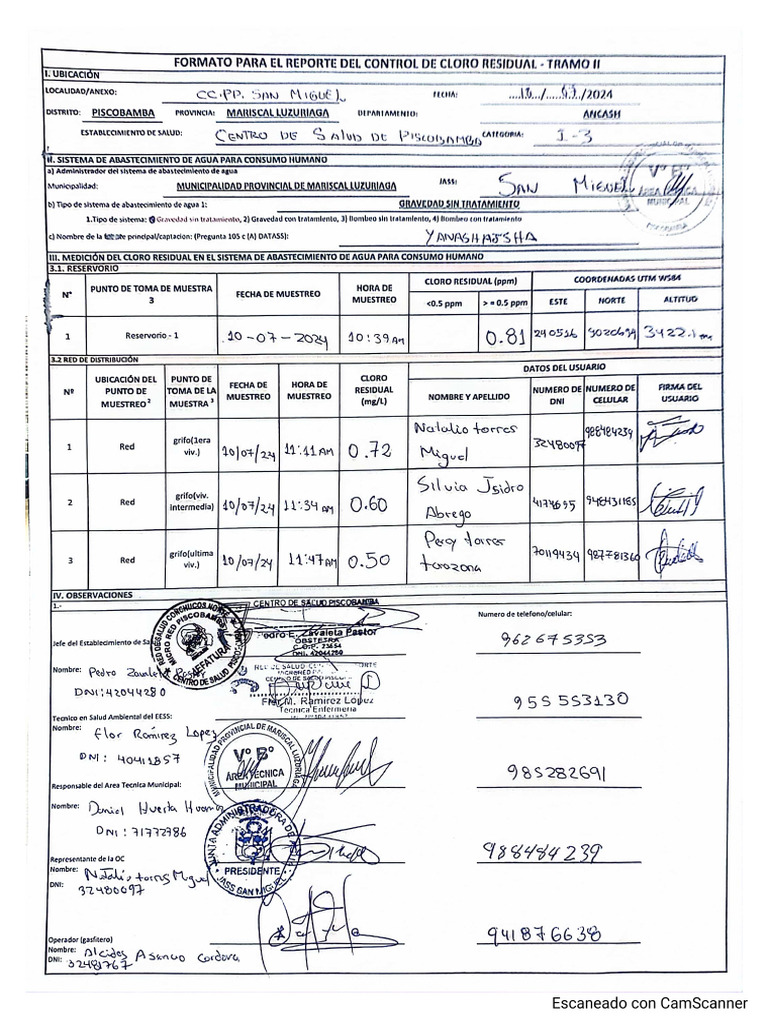 FORMATO PARA EL REPORTE DEL CONTROL DE CLORO RESIDUAL - TRAMO II
I. UBICACIÓN
LOCALIDAD/ANEXO: CC.PP. SAN MIGUEL FECHA: /2024
DISTRITO: PISCOBAMBA PROVINCIA: MARISCAL LUZURIAGA DEPARTAMENTO: ANCASH
ESTABLECIMIENTO DE SALUD: CENTRO DE SALUD DE PISCOBAMBA CATEGORIA: I-3
II. SISTEMA DE ABASTECIMIENTO DE AGUA PARA CONSUMO HUMANO
a) Administrador del sistema de abastecimiento de agua
Municipalidad: MUNICIPALIDAD PROVINCIAL DE MARISCAL LUZURIAGA JASS: SAN MIGUEL
VºBº
AREA TECNICA
MUNICIPAL
b) Tipo de sistema de abastecimiento de agua 1: GRAVEDAD SIN TRATAMIENTO
1.Tipo de sistema: Gravedad sin tratamiento, 2) Gravedad con tratamiento, 3) Bombeo sin tratamiento, 4) Bombeo con tratamiento
c) Nombre de la principal/captacion: (Pregunta 105 c (A) DATASS): YANASHAJSHA
III. MEDICIÓN DEL CLORO RESIDUAL EN EL SISTEMA DE ABASTECIMIENTO DE AGUA PARA CONSUMO HUMANO
3.1. RESERVORIO
N° PUNTO DE TOMA DE MUESTRA 3 FECHA DE MUESTREO HORA DE MUESTREO CLORO RESIDUAL (ppm) COORDENADAS UTM WS84
<0.5 ppm > = 0.5 ppm ESTE NORTE ALTITUD
1 Reservorio - 1 10-07-2024 10:39 AM 0.81 240516 9020694 3422.1
3.2 RED DE DISTRIBUCIÓN
Nº UBICACIÓN DEL PUNTO DE MUESTREO 2 PUNTO DE TOMA DE LA MUESTRA 3 FECHA DE MUESTREO HORA DE MUESTREO CLORO RESIDUAL (mg/L) DATOS DEL USUARIO
NOMBRE Y APELLIDO NUMERO DE DNI NUMERO DE CELULAR FIRMA DEL USUARIO
1 Red grifo(1era viv.) 10/07/24 11:11 AM 0.72 Natalio torres Miguel 32480097 988484239
2 Red grifo(viv. intermedia) 10/07/24 11:34 AM 0.60 Silvia Isidro Abrego 4174695 948431185
3 Red grifo(ultima viv.) 10/07/24 11:47 AM 0.50 Percy torres tarazona 70119434 987781360
IV. OBSERVACIONES
1.-
CENTRO DE SALUD PISCOBAMBA
Pedro E. Zavaleta Pastor
OBSTETRA
C.O.P. 23654
DNI. 42044280
RED DE SALUD CONCHUCOS NORTE
MICRO RED PISCOBAMBA
JEFATURA
CENTRO DE SALUD PISCOBAMBA
Numero de telefono/celular:
Jefe del Establecimiento de 962675353
Nombre: Pedro Zavaleta
DNI: 42044280
M. Ramirez Lopez
Tecnica Enfermeria
955553130
Tecnico en Salud Ambiental del EESS:
Nombre: Flor Ramirez Lopez
DNI: 40411857
MUNICIPALIDAD PROVINCIAL DE MARISCAL LUZURIAGA
VºBº
AREA TECNICA
MUNICIPAL
985282691
Responsable del Area Tecnica Municipal:
Nombre: Daniel Huerta
DNI: 71772786
JUNTA ADMINISTRADORA DE
PRESIDENTE
JASS SAN MIGUEL
988484239
Representante de la OC
Nombre: Natalio torres Miguel
DNI: 32480097
941876638
Operador (gasfitero)
Nombre: Alcides Asencio Cordova
DNI: 32481767
Escaneado con CamScanner